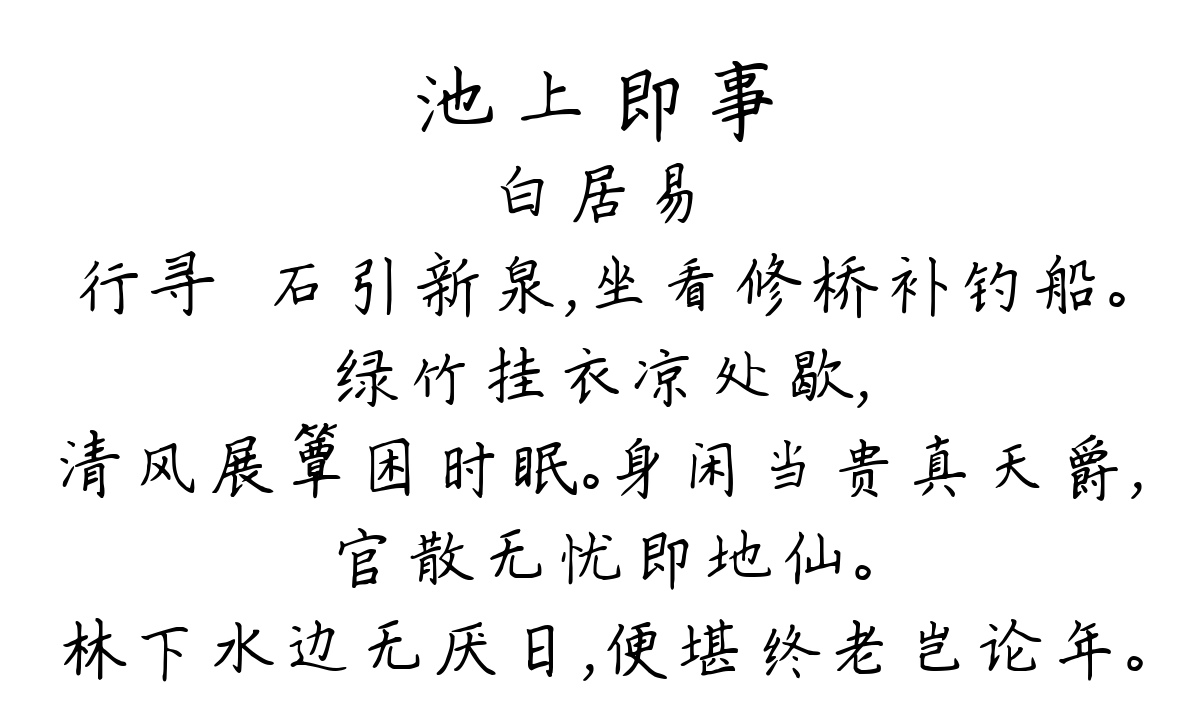 池上即事
白居易
行寻 石引新泉,坐看修桥补钓船。
绿竹挂衣凉处歇,
清风展簟困时眠。身闲当贵真天爵,
官散无忧即地仙。
林下水边无厌日,便堪终老岂论年。